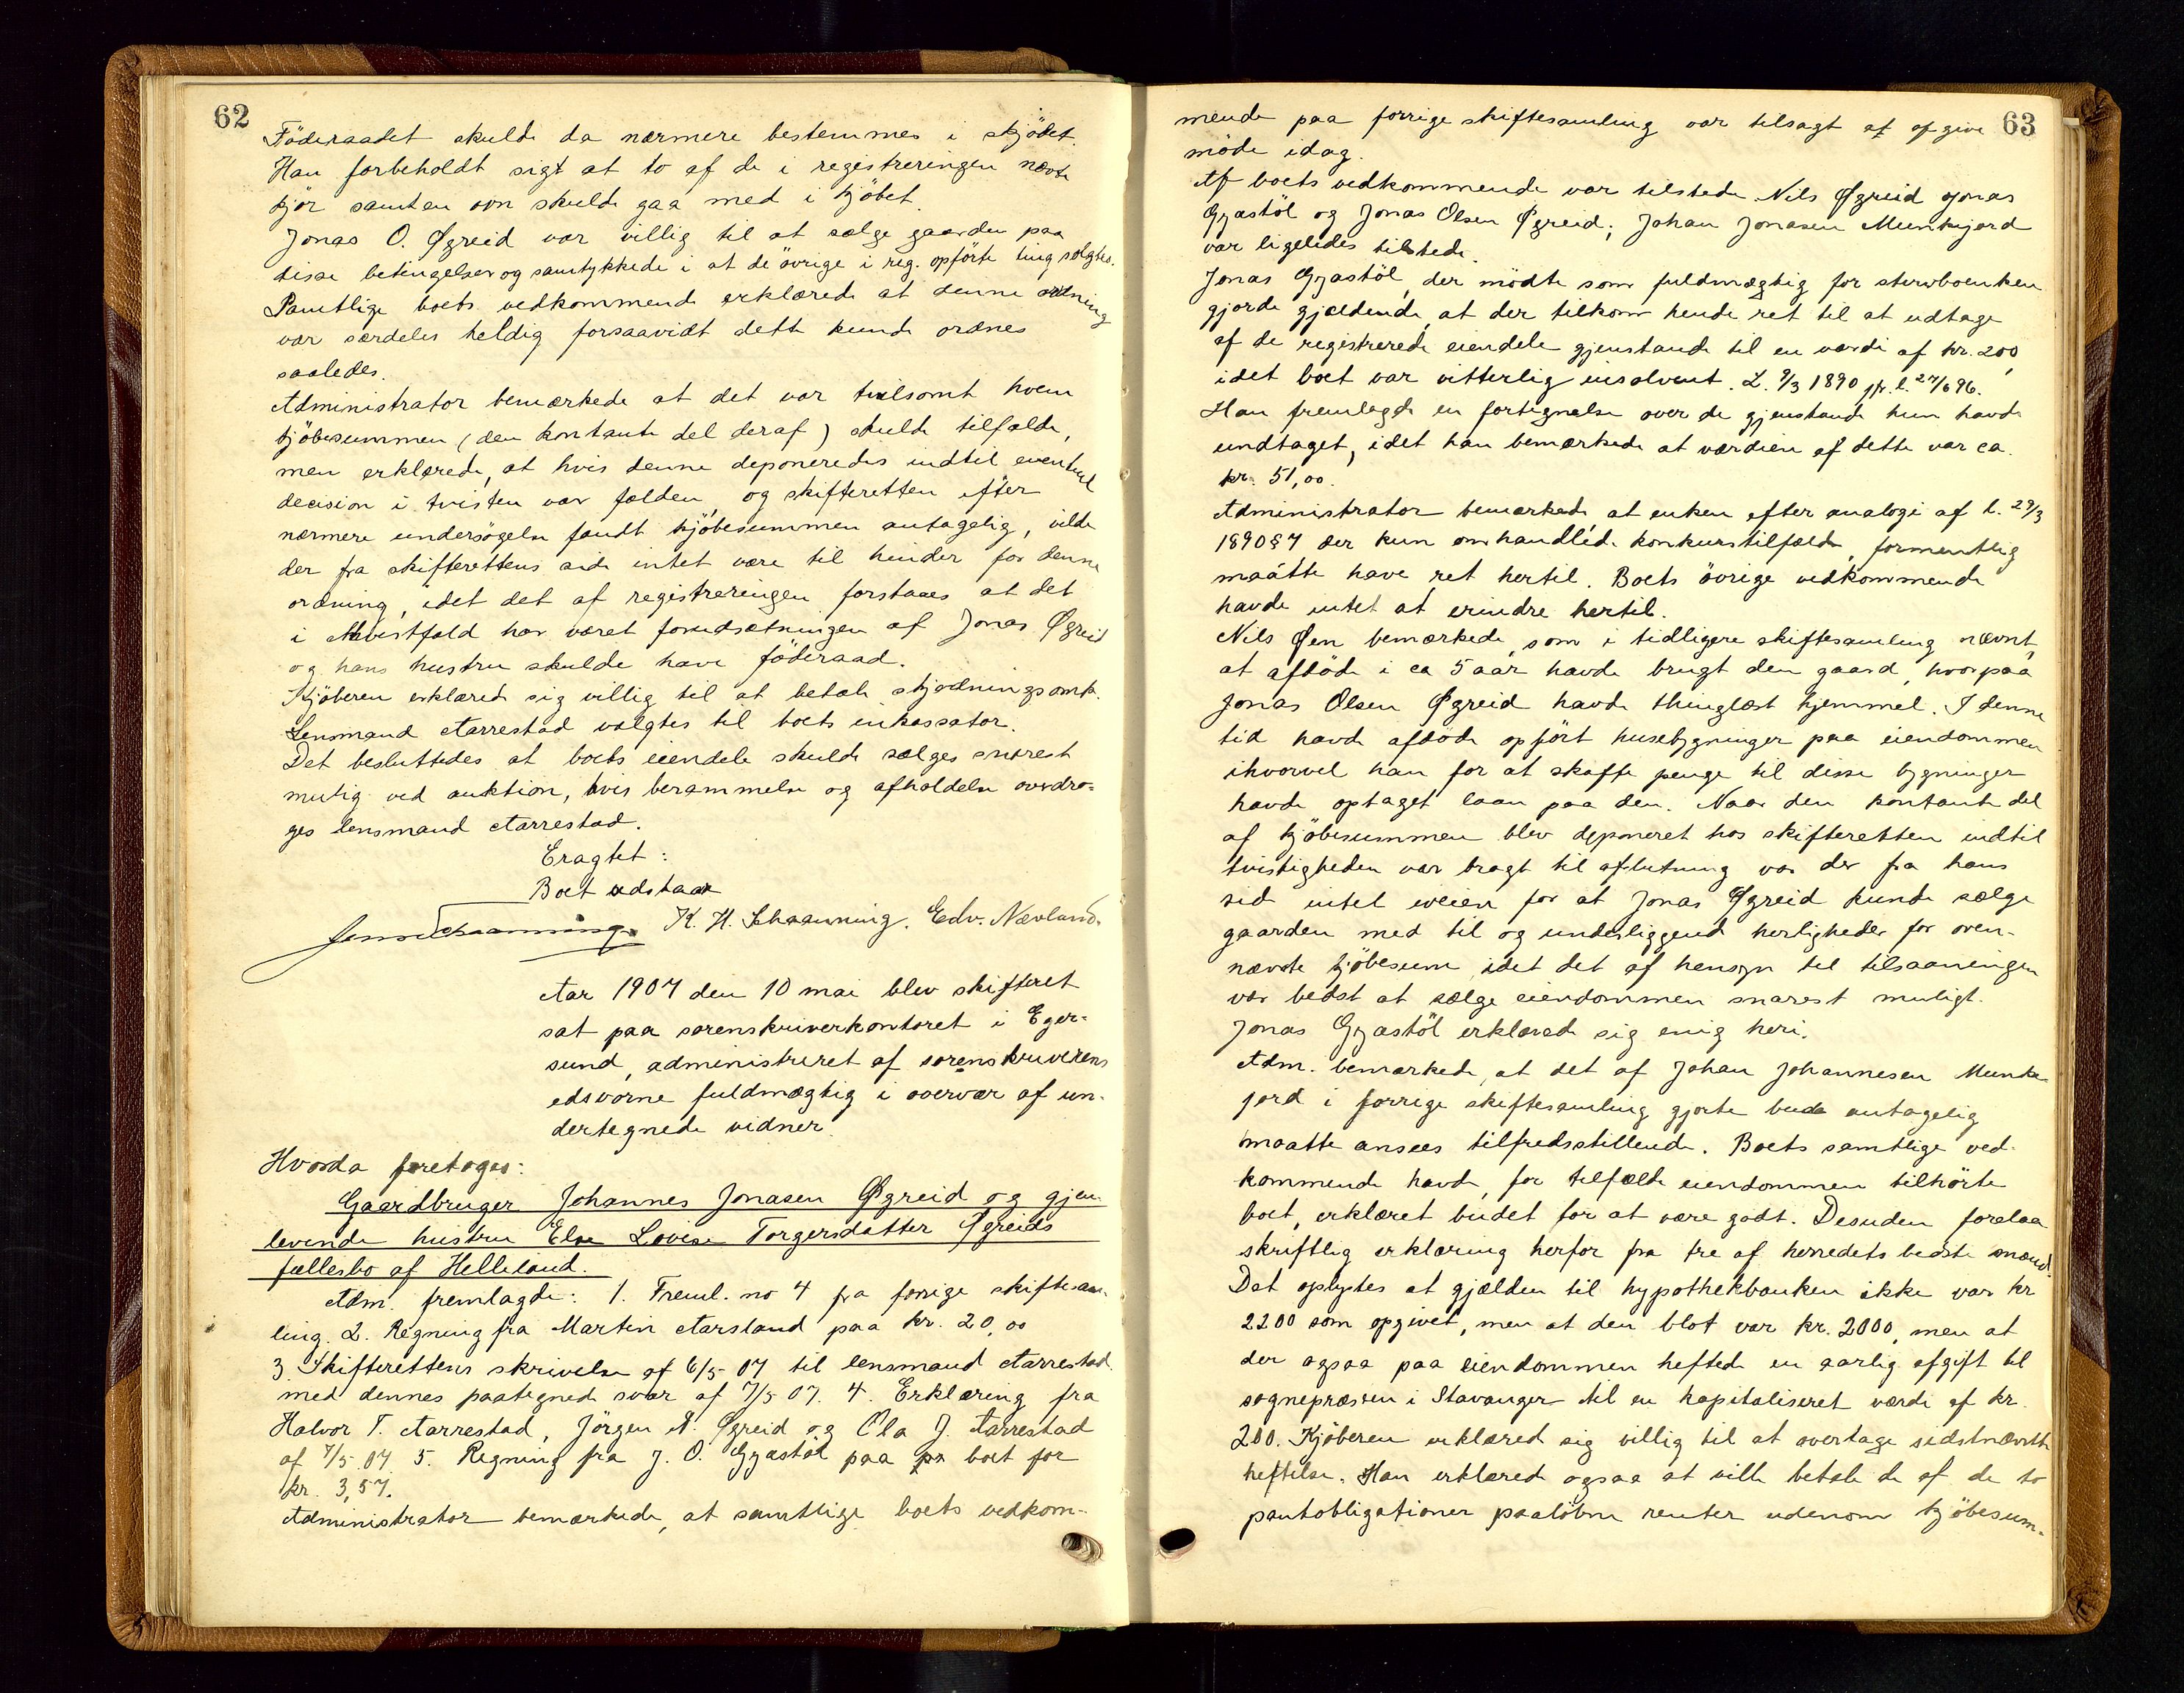 62
Föderaadet skulde da nærmere bestemmes i skjödet.
Han forbeholdt sigt at to af de i registreringen nævte
kjör samt en ovn skulde gaa med i kjöbet.
Jonas O. Øgreid var villig til at sælge gaarden paa
disse betingelser og samtykkede i at de övrige i reg. opförte ting solgtes.
Samtlige boets vedkommende erklærede at denne ordning
var særdeles heldig forsaavidt dette kunde ordnes
saaledes.
Administrator bemærkede at det var tvilsomt hvem
kjöbesummen (den kontante del deraf) skulde tilfalde,
men erklærede, at hvis denne deponeredes indtil eventuel
decision i tvisten var falden, og skifteretten efter
nærmere undersögelse fandt kjöbesummen antagelig, vilde
der fra skifterettens side intet være til hinder for denne
ordning, idet det af registreringen forstaaes at det
i ethvertfald har været forudsætningen af Jonas Øgreid
og hans hustru skulde have föderaad.
Kjöberen erklæred sig villig til at betale skjødningsomk.
Lensmand Aarrestad valgtes til boets inkassator.
Det besluttedes at boets eiendele skulde sælges snarest
mulig ved auktion, hvis berammelse og afholdelse overdra-
ges lensmand Aarrestad.
Eragtet:
Boet udstaar
Jens Schaanning K. H. Schaanning. Edv. Nævland.
Aar 1907 den 10 mai blev skifteret
sat paa sorenskriverkontoret i Eger-
sund, administreret af sorenskriverens
edsvorne fuldmægtig i overvær af un-
dertegnede vidner
Hvorda foretoges:
Gaardbruger Johannes Jonasen Øgreid og gjen-
levende hustru Else Lovise Torgersdatter Øgreids
fællesbo af Helleland.
Adm. fremlagde: 1. Freml. no 4 fra forrige skiftesam-
ling. 2. Regning fra Martin Aarstand paa kr. 20,00
3. Skifterettens skrivelse af 6/5 07 til lensmand Aarrestad
med dennes paategnede svar af 7/5 07. 4. Erklæring fra
Halvor T. Aarrestad, Jörgen A. Øgreid og Ola J. Aarrestad
af 7/5.07 5. Regning fra J. O. Gyastöl paa boet for
kr. 3,57.
Administrator bemærkede, at samtlige boets vedkom-
63
mende paa forrige skiftesamling var tilsagt at opgive
möde idag.
Af boets vedkommende var tilstede Nils Øgreid Jonas
Gyastöl og Jonas Olsen Øgreid; Johan Jonasen Munkejord
var ligeledes tilstede.
Jonas Gyastöl, der mödte som fuldmægtig for stervboenken
gjorde gjældende, at der tilkom hende ret til at udtage
af de registrerede eiendele gjenstande til en værdi af kr. 200,
idet boet var vitterlig insolvent. L. 9/3 1890 jfr. l. 27/6 96.
Han fremlagde en fortegnelse over de gjenstande hun havde
undtaget, idet han bemærkede at værdien af dette var ca.
kr. 51,00.
Administrator bemærkede at enken efter analogi af l. 29/3
1890 § 7 der kun omhandlede konkurstilfælde, formentlig
maatte have ret hertil. Boets övrige vedkommende
havde intet at erindre hertil.
Nils Øen bemærkede, som i tidligere skiftesamling nævnt,
at afdöde i ca 5 aar havde brugt den gaard, hvorpaa
Jonas Olsen Øgreid havde thinglæst hjemmel. I denne
tid havde afdöde opfört husebygninger paa eiendommen
ihvorvel han for at skaffe penge til disse bygninger
havde optaget laan paa den. Naar den kontante del
af kjöbesummen blev deponeret hos skifteretten indtil
tvistigheden var bragt til afslutning var der fra hans
side intet iveien for at Jonas Øgreid kunde sælge
gaarden med til og underliggende herligheder for oven-
nævnte kjöbesum, idet det af hensyn til tilsaaningen
var bedst at sælge eiendommen snarest muligt.
Jonas Gyastöl erklærede sig enig heri.
Adm. bemærkede, at det af Johan Johannesen Munke-
jord i forrige skiftesamling gjorte bud antagelig
maatte ansees tilfredsstillende. Boets samtlige ved-
kommende havde, for tilfælde eiendommen tilhörte
boet, erklæret budet for at være godt. Desuden forelaa
skriftlig erklæring herfor fra tre af herredets bedste mænd.
Det oplystes at gjælden til hypothekbanken ikke var kr
2200 som opgivet, men at den blot var kr. 2000, men at
der ogsaa paa eiendommen heftede en aarlig afgift til
sognepræsten i Stavanger til en kapitaliseret værdi af kr.
200. Kjöberen erklæred sig villig til at overtage sidstnævnte
heftelse. Han erklæred ogsaa at ville betale de af de to
pantobligationer paalöbne renter udenom kjöbesum-